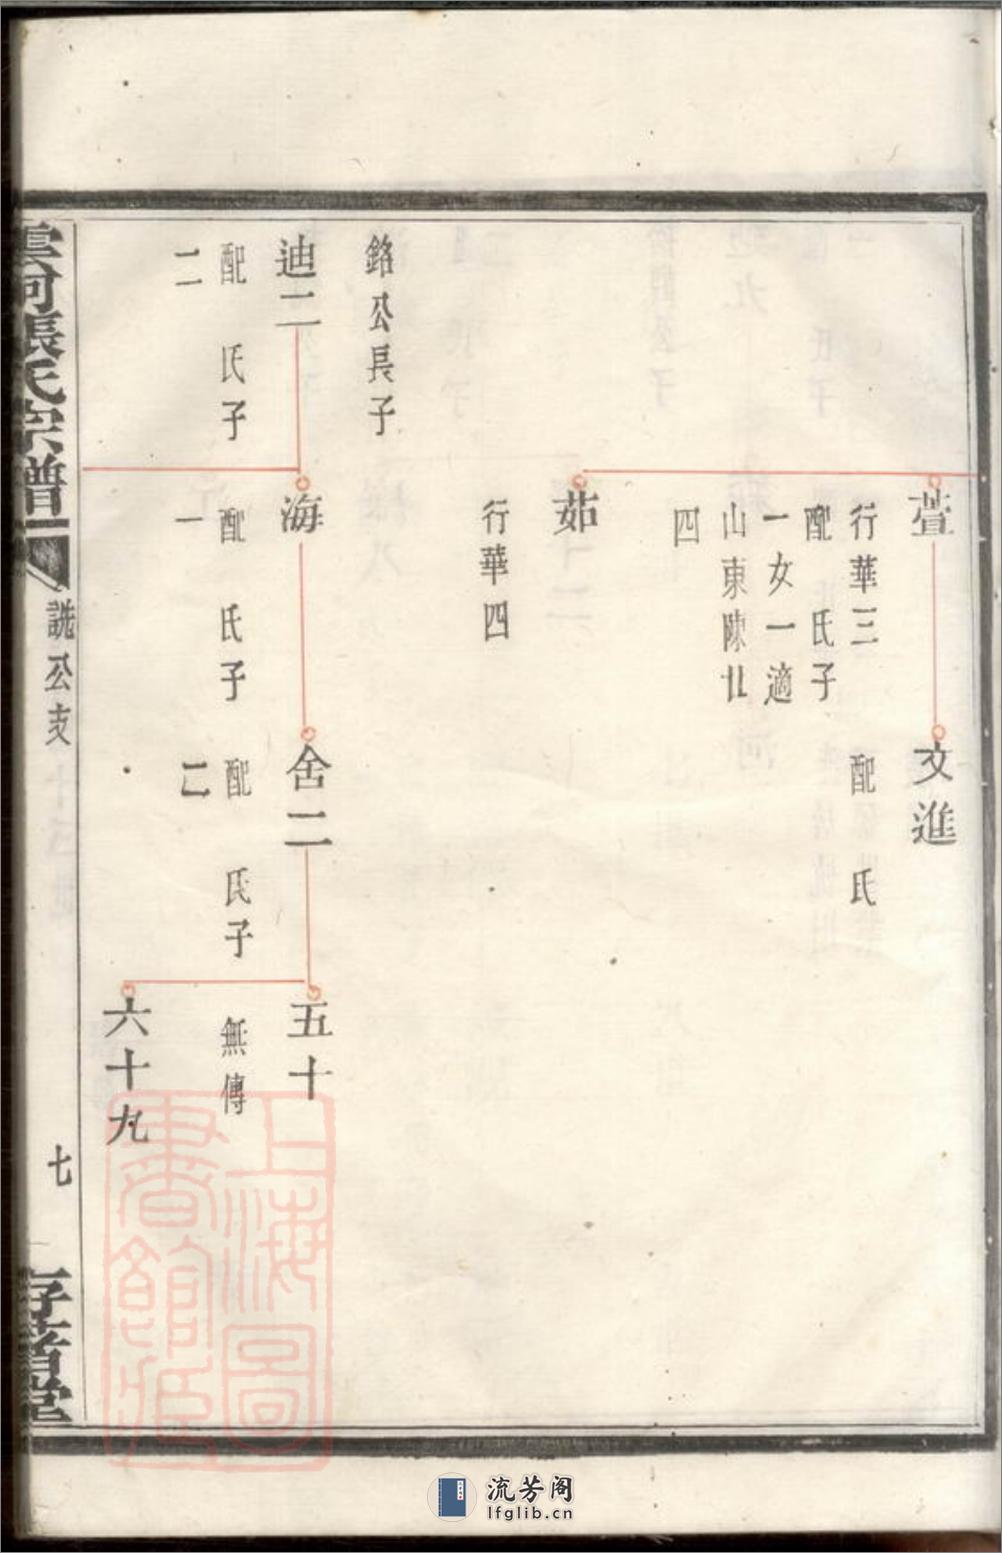 萱
行華三
配 氏子
一女一適
山東陳北
四
文進
配 氏
茹
行華四
銘公長子
迪二
配 氏子
二
海
配 氏子
一
舍二
配 氏子
二
五十
無傳
六十九
雲河張氏宗譜
詵公支
七
存著堂
上海圖
書館藏
流芳阁
lfglib.cn